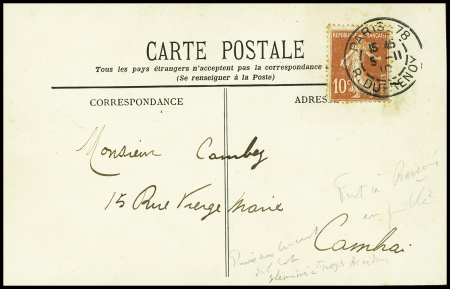 CARTE POSTALE
Tous les pays étrangers n'acceptent pas la correspondance
(Se renseigner à la Poste)
CORRESPONDANCE
ADRESSE
REPUBLIQUE FRANÇAISE
10
PARIS-78
15
5 -11
R. DUFRENOY
Monsieur Cambey
15 Rue Vierge Marie
Cambrai